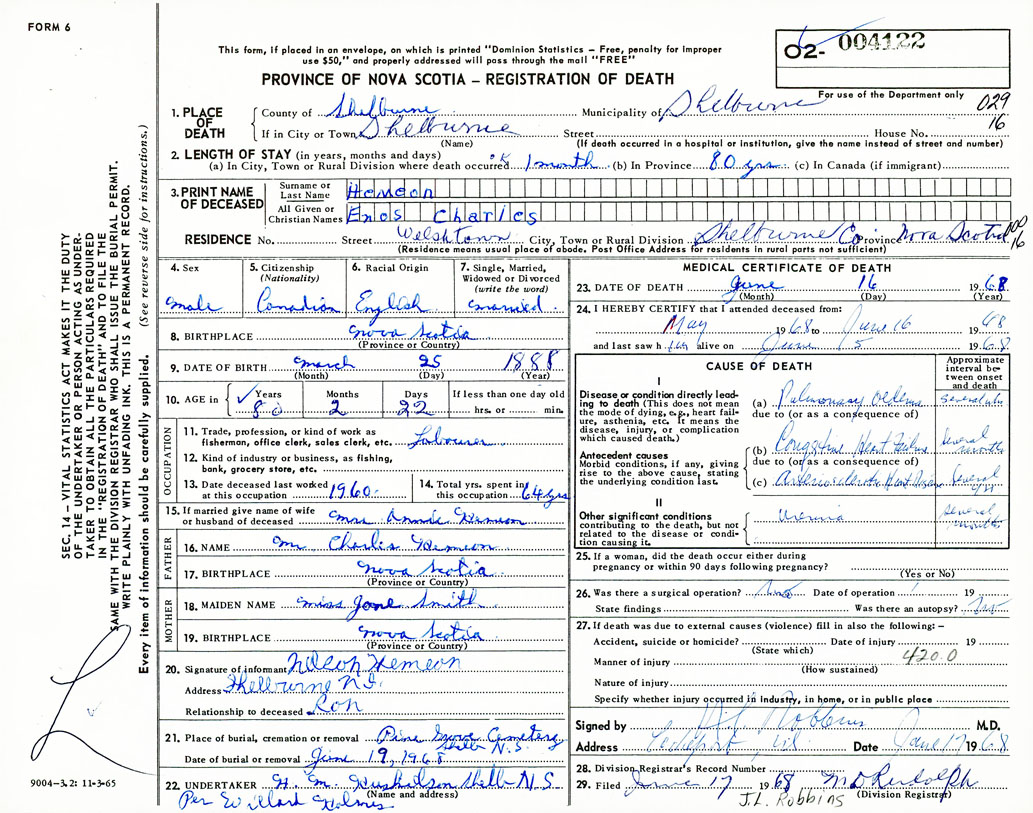 FORM 6
O2- 004122
This form, if placed in an envelope, on which is printed "Dominion Statistics – Free, penalty for improper
use $50," and properly addressed will pass through the mail "FREE"
PROVINCE OF NOVA SCOTIA – REGISTRATION OF DEATH
For use of the Department only
029
16
1. PLACE OF DEATH
County of Shelburne Municipality of Shelburne
If in City or Town Shelburne Street House No.
(Name) (If death occurred in a hospital or institution, give the name instead of street and number)
2. LENGTH OF STAY (in years, months and days)
(a) In City, Town or Rural Division where death occurred 1 month (b) In Province 80 yrs (c) In Canada (if immigrant)
3. PRINT NAME OF DECEASED
Surname or Last Name Hemeon
All Given or Christian Names Enos Charles
RESIDENCE No. Street Welshtown City, Town or Rural Division Shelburne Co. Province Nova Scotia
(Residence means usual place of abode. Post Office Address for residents in rural parts not sufficient)
16
4. Sex
male
5. Citizenship
(Nationality)
Canadian
6. Racial Origin
English
7. Single, Married,
Widowed or Divorced
(write the word)
married
8. BIRTHPLACE Nova Scotia
(Province or Country)
9. DATE OF BIRTH March 25 1888
(Month) (Day) (Year)
10. AGE in Years Months Days If less than one day old
80 2 22 hrs. or min.
OCCUPATION
11. Trade, profession, or kind of work as
fisherman, office clerk, sales clerk, etc. Labourer
12. Kind of industry or business, as fishing,
bank, grocery store, etc.
13. Date deceased last worked
at this occupation 1960
14. Total yrs. spent in
this occupation 64 yrs
15. If married give name of wife
or husband of deceased Mrs Annie Hemeon
FATHER
16. NAME Mr. Charles Hemeon
17. BIRTHPLACE Nova Scotia
(Province or Country)
MOTHER
18. MAIDEN NAME Miss Jane Smith
19. BIRTHPLACE Nova Scotia
(Province or Country)
20. Signature of informant Nelson Hemeon
Address Shelburne N.S.
Relationship to deceased Son
21. Place of burial, cremation or removal Pine Grove Cemetery
Shelb N.S.
Date of burial or removal June 19, 1968
22. UNDERTAKER H. M. Shelb N.S.
(Name and address)
Per Willard Holmes
MEDICAL CERTIFICATE OF DEATH
23. DATE OF DEATH June 16 1968
(Month) (Day) (Year)
24. I HEREBY CERTIFY that I attended deceased from:
May 1968 to June 16 1968
and last saw h im alive on June 5 1968
CAUSE OF DEATH
Approximate
interval be-
tween onset
and death
I
Disease or condition directly lead-
ing to death (This does not mean
the mode of dying, e.g., heart fail-
ure, asthenia, etc. It means the
disease, injury, or complication
which caused death.)
(a) Pulmonary Edema several
due to (or as a consequence of)
Antecedent causes
Morbid conditions, if any, giving
rise to the above cause, stating
the underlying condition last.
(b) Congestive Heart Failure several months
due to (or as a consequence of)
(c) Arteriosclerotic Heart several
II
Other significant conditions
contributing to the death, but not
related to the disease or condi-
tion causing it.
Uremia several months
25. If a woman, did the death occur either during
pregnancy or within 90 days following pregnancy?
(Yes or No)
26. Was there a surgical operation? Date of operation 19
State findings Was there an autopsy? No
27. If death was due to external causes (violence) fill in also the following: –
Accident, suicide or homicide? Date of injury 19
(State which)
420.0
Manner of injury
(How sustained)
Nature of injury
Specify whether injury occurred in industry, in home, or in public place
Signed by Robbins M.D.
Address Lockeport, Date June 17 1968
28. Division Registrar's Record Number
29. Filed June 17 1968 M D Rudolph
(Division Registrar)
J.L. Robbins
SEC. 14 – VITAL STATISTICS ACT MAKES IT THE DUTY
OF THE UNDERTAKER OR PERSON ACTING AS UNDER-
TAKER TO OBTAIN ALL THE PARTICULARS REQUIRED
IN THE "REGISTRATION OF DEATH" AND TO FILE THE
SAME WITH THE DIVISION REGISTRAR WHO SHALL ISSUE THE BURIAL PERMIT.
WRITE PLAINLY WITH UNFADING INK. THIS IS A PERMANENT RECORD.
Every item of information should be carefully supplied. (See reverse side for instructions.)
9004–3.2: 11-3-65